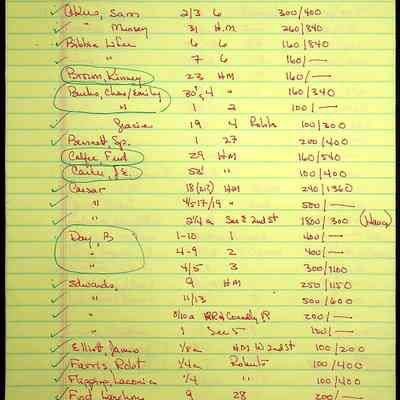 Akers, Sam 2/3 6 300/400
" Munsey 31 H.M. 260/340
6 6 160/840
" 7 6 160/—
Brown, Kinney 23 HM 160/—
Burks, Chas/Emily 30's, 4 " 160/340
" 1 2 100/—
Gracie 19 4 100/300
Bennett, Sp. 1 27 200/400
Calfee, Fred 29 HM 160/540
J.E. 52 " 100/400
Caesar 18 HM 240/1360
" 4/5-17/19 " 500/—
" 2 1/4 a See 8 2nd St 1800/300
Day, B 1-10 1 400/—
" 4-9 2 400/—
" 4/5 3 300/1100
Edwards, 9 HM 250/1150
" 11/13 500/600
RR & 200/—
" 1 Sec 5
Elliott, James 1/8 a HM W 2nd St 100/200
Farris, Robt 1/4 a Roberts 100/400
1/4 " 100/400
9 28 200/—